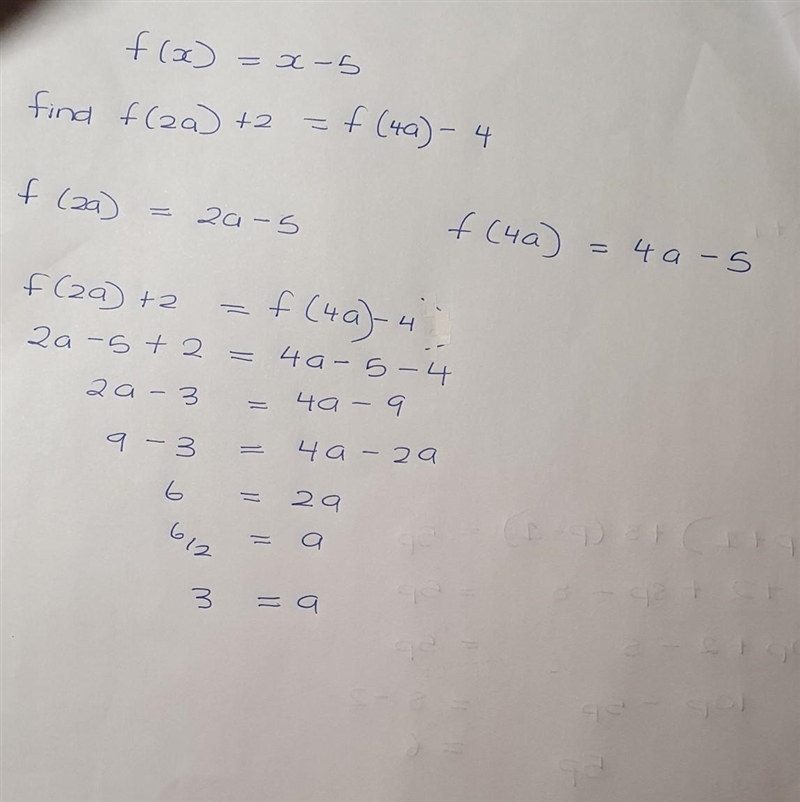 f(x) = x - 5
find f(2a) + 2 = f(4a) - 4
f(2a) = 2a - 5 f(4a) = 4a - 5
f(2a) + 2 = f(4a) - 4
2a - 5 + 2 = 4a - 5 - 4
2a - 3 = 4a - 9
9 - 3 = 4a - 2a
6 = 2a
6/2 = a
3 = a